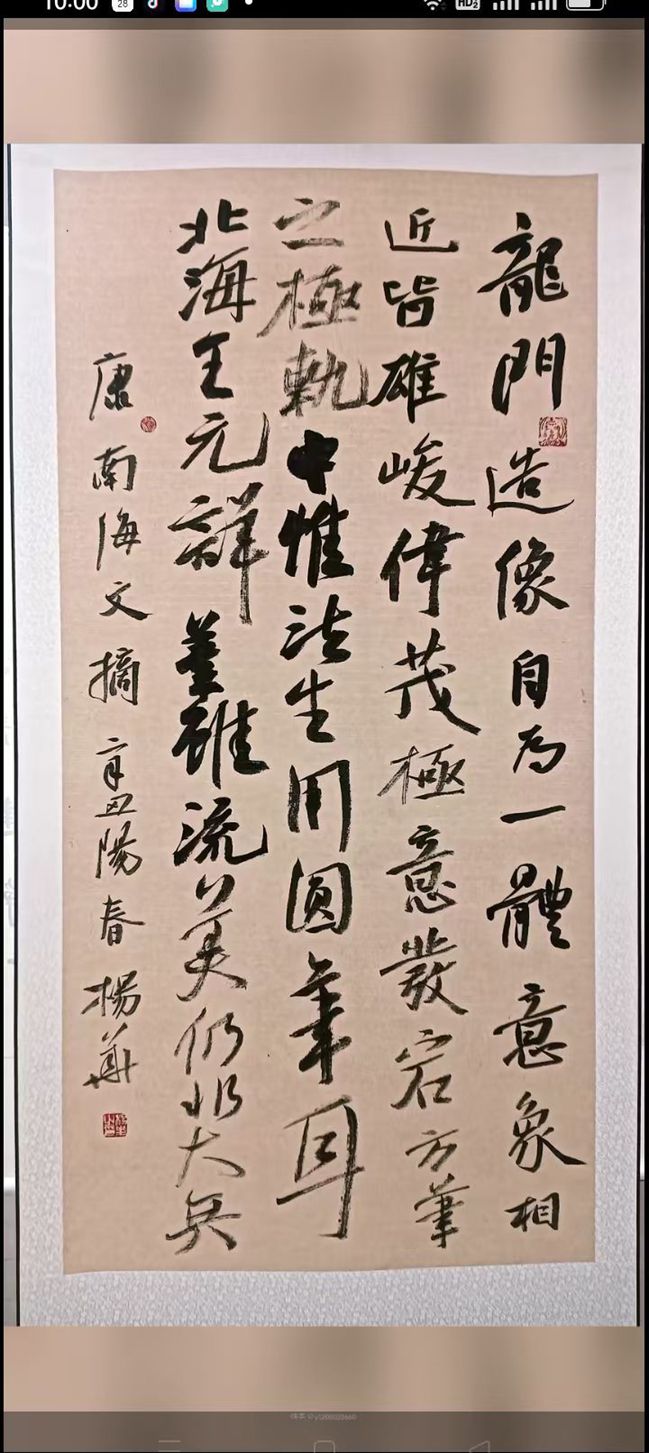 10:00 28 HD2
龍門造像自為一體意象相
近皆雄峻偉茂極意發宕方筆
之極軌中惟法生用圓筆耳
北海王元詳筆雖流美仍非大異
康南海文摘辛丑陽春楊華